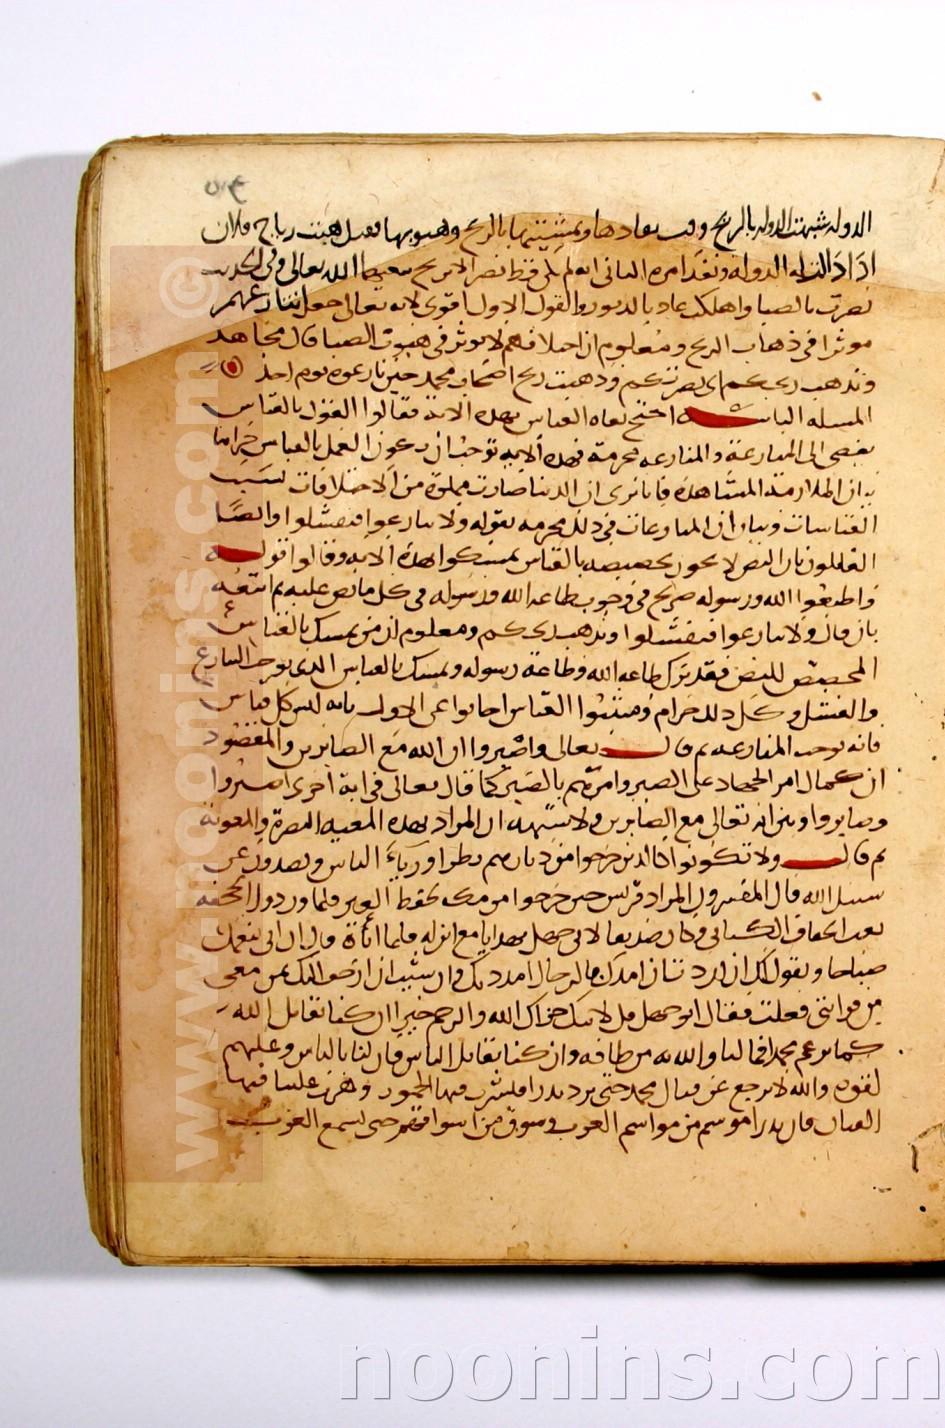 الدولة شبهت الدولة بالريح وقت نفادها وتمشيتها بالريح وهبوبها فقيل هبت رياح فلان
اذا دالت له الدولة ونفذ امره الثاني انه لم يكن قط نصر الا بريح يبعثها الله تعالى وفي الحديث
نصرت بالصبا واهلكت عاد بالدبور والقول الاول اقوى لانه تعالى جعل تنازعهم
موثرا في ذهاب الريح ومعلوم ان اختلافهم لا يوثر في هبوب الصبا قال مجاهد
وتذهب ريحكم اى نصرتكم وذهبت ريح اصحاب محمد حين نازعوه يوم احد
المسله الثالثه احتج نفاه القياس بهذه الاية فقالوا القول بالقياس
يفضى الى المنازعة والمنازعه محرمة فهذه الاية توجب ان يكون العمل بالقياس حراما
بيان الملازمة المشاهدة فانا نرى ان الدنيا صارت مملوة من الاختلافات بسبب
القياسات وبيان ان المنازعات محرمه بقوله ولا تنازعوا فتفشلوا وايضا
القايلون بان النص لا يجوز تخصيصه بالقياس تمسكوا بهذه الاية وقالوا قوله
واطيعوا الله ورسوله صريح في وجوب طاعة الله ورسوله في كل ما نص عليه ثم اتبعه
بان قال ولا تنازعوا فتفشلوا وتذهب ريحكم ومعلوم ان من تمسك بالقياس
المخصص للنص فقد ترك طاعة الله وطاعة رسوله وتمسك بالقياس الذي يوجب التنازع
والفشل وكل ذلك حرام ومثبتوا القياس اجابوا عن الاول بانه ليس كل قياس
فانه يوجب المنازعه ثم قال تعالى واصبروا ان الله مع الصابرين والمقصود
ان كمال امر الجهاد على الصبر وامرهم بالصبر كما قال تعالى في اية اخرى اصبروا
وصابروا وبين انه تعالى مع الصابرين ولا شبهه ان المراد بهذه المعيه النصرة والمعونة
ثم قال ولا تكونوا كالذين خرجوا من ديارهم بطرا ورياء الناس ويصدون عن
سبيل الله قال المفسرون المراد قريش حين خرجوا من مكة لحفظ العير فلما وردوا الجحفه
بعث الخفاف الكناني وكان صديقا لابي جهل بهدايا مع ابن له فلما اتاه قال ان ابى ينعمك
صباحا ويقول لك ان اردت ان امدك بالرجال امددتك وان شيت ان ازحف اليك بمن معى
من قرابتى فعلت فقال ابو جهل قل لابيك جزاك الله والرحم خيرا ان كنا نقاتل الله
كما يزعم محمد فما لنا والله به من طاقه وان كنا نقاتل الناس فان لنا بالناس وعليهم
لقوة والله لا نرجع عن قتال محمد حتى نرد بدرا فنشرب فيها الخمور وتعزف علينا فيها
القيان فان بدرا موسم من مواسم العرب وسوق من اسواقهم حتى تسمع العرب
www.noonins.com ©
noonins.com